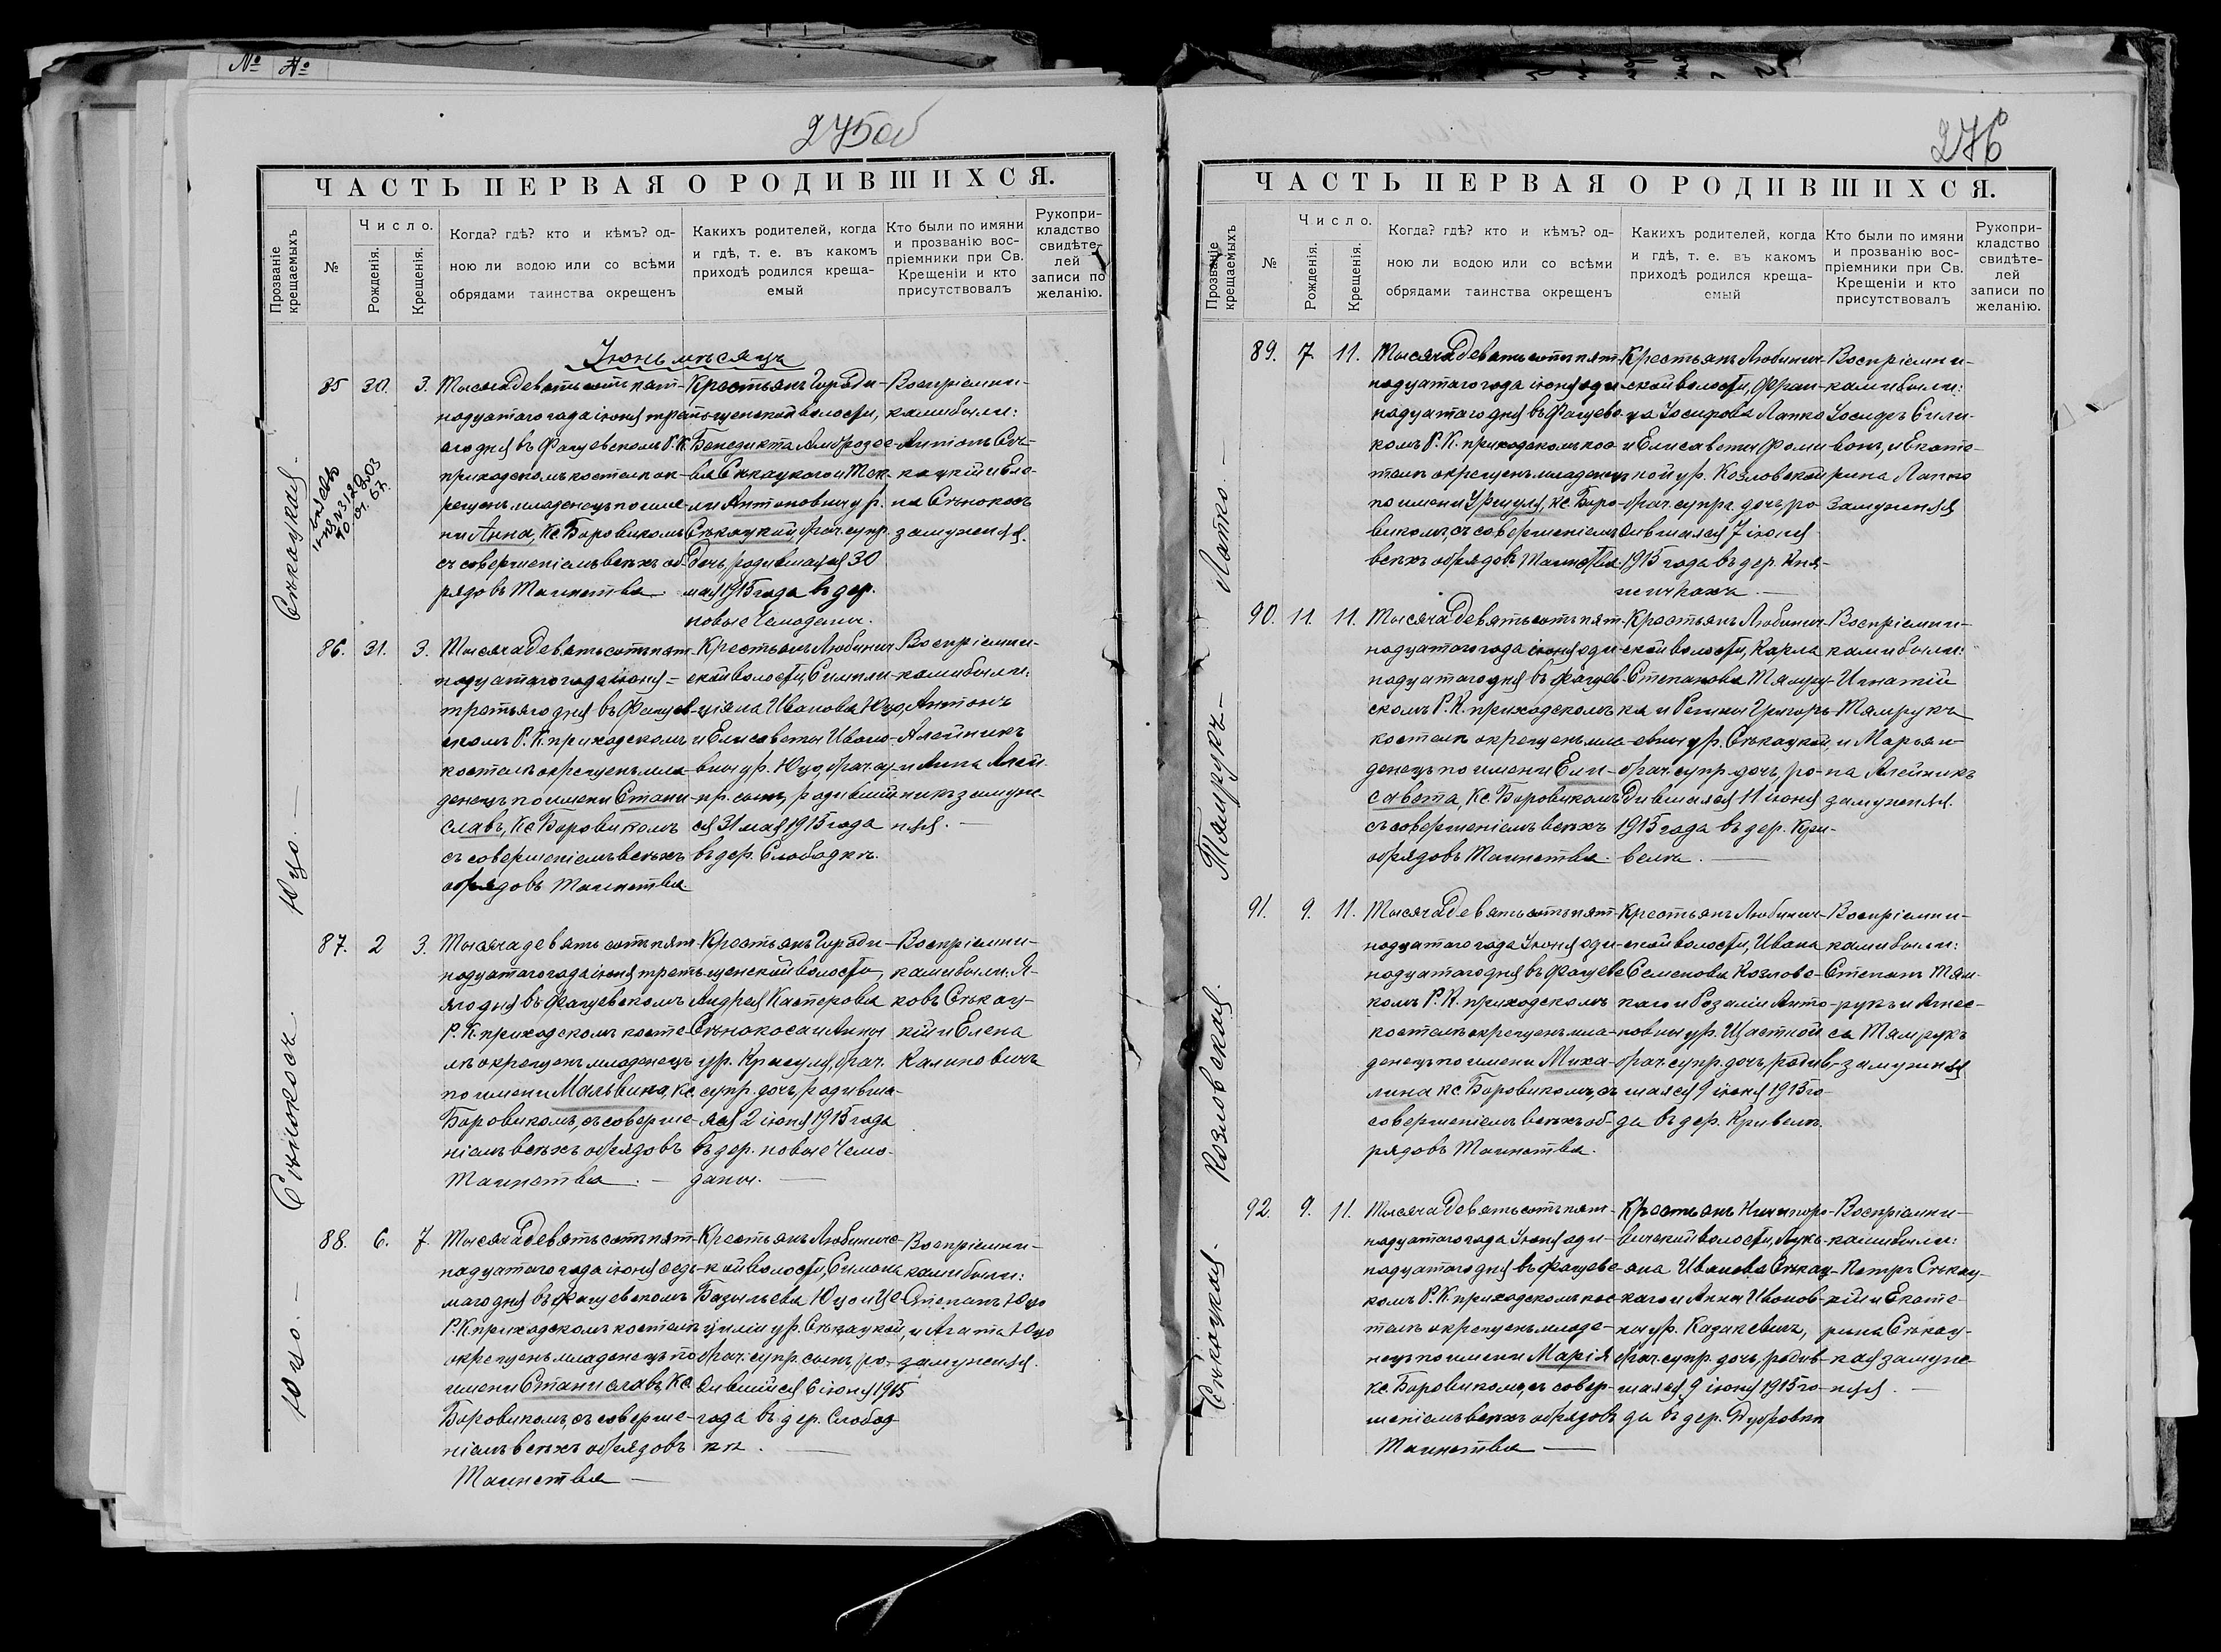 № №
275 об
ЧАСТЬ ПЕРВАЯ О РОДИВШИХСЯ.
Прозваніе крещаемыхъ
№
Число.
Рожденія.
Крещенія.
Когда? гдѣ? кто и кѣмъ? од-
ною ли водою или со всѣми
обрядами таинства окрещенъ
Какихъ родителей, когда
и гдѣ, т. е. въ какомъ
приходѣ родился креща-
емый
Кто были по имяни
и прозванію вос-
пріемники при Св.
Крещеніи и кто
присутствовалъ
Рукопри-
кладство
свидѣте-
лей
записи по
желанію.
Іюнь мѣсяцъ
Сѣкацкая.
85 30. 3.
Тысяча девятьсотъ пят-
надцатаго года іюня треть-
яго дня въ Фащевскомъ Р. К.
приходскомъ костелѣ ок-
рещенъ младенецъ по име-
ни Анна, Кс. Боровикомъ
съ совершеніемъ всѣхъ об-
рядовъ Таинства.
Крестьянъ Городи-
щенской волости,
Бенедикта Амброзое-
ва Сѣкацкого и Тек-
ли Антоновны ур.
Сѣкацкой, брач. супр.
дочь, родившаяся 30
мая 1915 года въ дер.
новые Чемоданы.
Воспріемни-
ками были:
Антонъ Сѣ-
кацкій и Еле-
на Сѣнокосъ
замужняя.
Юцо.
86. 31. 3.
Тысяча девятьсотъ пят-
надцатаго года іюня =
третьяго дня въ Фащев-
скомъ Р. К. приходскомъ
костелѣ окрещенъ мла-
денецъ по имени Стани-
славъ, Кс. Боровикомъ
съ совершеніемъ всѣхъ
обрядовъ Таинства
Крестьянъ Любинич-
ской волости, Симпли-
ціяна Иванова Юцо,
и Елисаветы Ивано-
вны ур. Юцо, брач. су-
пр. сынъ, родивший-
ся 31 мая 1915 года
въ дер. Слободкѣ.
Воспріемни-
ками были:
Антонъ
Алейникъ
и Анна Алей-
никъ замуж-
няя.
Сѣнокосъ.
87. 2 3.
Тысяча девятьсотъ пят-
надцатаго года іюня треть-
яго дня въ Фащевскомъ
Р. К. приходскомъ косте-
лѣ окрещенъ младенецъ
по имени Мальвина, Кс.
Боровикомъ, съ соверше-
ніемъ всѣхъ обрядовъ
Таинства.
Крестьянъ Городи-
щенской волости
Андрея Касперова
Сѣнокоса и Анны
ур. Красуля, брач.
супр. дочь, родивша-
яся 2 іюня 1915 года
въ дер. новые Чемо-
даны.
Воспріемни-
ками были: Я-
ковъ Сѣкац-
кій и Елена
Калиновичъ
Юцо.
88. 6. 7.
Тысяча девятьсотъ пят-
надцатаго года іюня седь-
маго дня въ Фащевскомъ
Р. К. приходскомъ костелѣ
окрещенъ младенецъ по
имени Станиславъ, Кс.
Боровикомъ, съ соверше-
ніемъ всѣхъ обрядовъ
Таинства
Крестьянъ Любинич-
кой волости, Симона
Базыльева Юцо и Це-
циліи ур. Сѣкацкой,
брач. супр. сынъ, ро-
дившійся 6 іюня 1915
года въ дер. Слобод-
кѣ.
Воспріемни-
ками были:
Степанъ Юцо
и Агата Юцо
замужняя.
276
ЧАСТЬ ПЕРВАЯ О РОДИВШИХСЯ.
Прозваніе крещаемыхъ
№
Число.
Рожденія.
Крещенія.
Когда? гдѣ? кто и кѣмъ? од-
ною ли водою или со всѣми
обрядами таинства окрещенъ
Какихъ родителей, когда
и гдѣ, т. е. въ какомъ
приходѣ родился креща-
емый
Кто были по имяни
и прозванію вос-
пріемники при Св.
Крещеніи и кто
присутствовалъ
Рукопри-
кладство
свидѣте-
лей
записи по
желанію.
Лапко.
89. 7 11.
Тысяча девятьсотъ пят-
надцатаго года іюня оди-
надцатаго дня въ Фащевс-
комъ Р. К. приходскомъ кос-
телѣ окрещенъ младенецъ
по имени Уршуля, Кс. Боро-
викомъ, съ совершеніемъ
всѣхъ обрядовъ Таинства.
Крестьянъ Любинич-
ской волости, Фран-
ца Іосифова Лапко
и Елисаветы Фоми-
ной ур. Козловской
брач. супр. дочь, ро-
дившаяся 7 іюня
1915 года въ дер. Кня-
жичкахъ.
Воспріемни-
ками были:
Іосифъ Сили-
вонъ, и Екате-
рина Лапко
замужняя
Тямрукъ
90. 11. 11.
Тысяча девятьсотъ пят-
надцатаго года іюня оди-
надцатаго дня въ Фащев-
скомъ Р. К. приходскомъ
костелѣ окрещенъ мла-
денецъ по имени Ели-
савета, Кс. Боровикомъ
съ совершеніемъ всѣхъ
обрядовъ Таинства.
Крестьянъ Любинич-
ской волости, Карла
Степанова Тямру-
ка и Регины Григорь-
евны ур. Сѣкацкой,
брач. супр. дочь, ро-
дившаяся 11 іюня
1915 года въ дер. Кри-
велѣ.
Воспріемни-
ками были:
Игнатій
Тямрукъ
и Марьян-
на Алейникъ
замужняя.
Козловская.
91. 9. 11.
Тысяча девятьсотъ пят-
надцатаго года Іюня оди-
надцатаго дня въ Фащевс-
комъ Р. К. приходскомъ
костелѣ окрещенъ мла-
денецъ по имени Миха-
лина Кс. Боровикомъ, съ
совершеніемъ всѣхъ об-
рядовъ Таинства.
Крестьянъ Любинич-
ской волости, Ивана
Семенова Козловс-
каго и Розаліи Анто-
новны ур. Щастной
брач. супр. дочь, родив-
шаяся 9 іюня 1915 го-
да въ дер. Кривелѣ.
Воспріемни-
ками были:
Степанъ Тям-
рукъ и Агнес-
са Тямрукъ
замужняя
Сѣкацкая.
92. 9. 11.
Тысяча девятьсотъ пят-
надцатаго года Іюня оди-
надцатаго дня въ Фащевс-
комъ Р. К. приходскомъ кос-
телѣ окрещенъ младе-
нецъ по имени Марія
Кс. Боровикомъ, съ совер-
шеніемъ всѣхъ обрядовъ
Таинства
Крестьянъ Ничипоро-
вичской волости, Лукь-
яна Иванова Сѣкац-
каго и Анны Иванов-
ны ур. Казакевичъ,
брач. супр. дочь, родив-
шаяся 9 іюня 1915 го-
да въ дер. Дубровкѣ
Воспріемни-
ками были:
Петръ Сѣкац-
кій и Екате-
рина Сѣкац-
кая замуж-
няя.